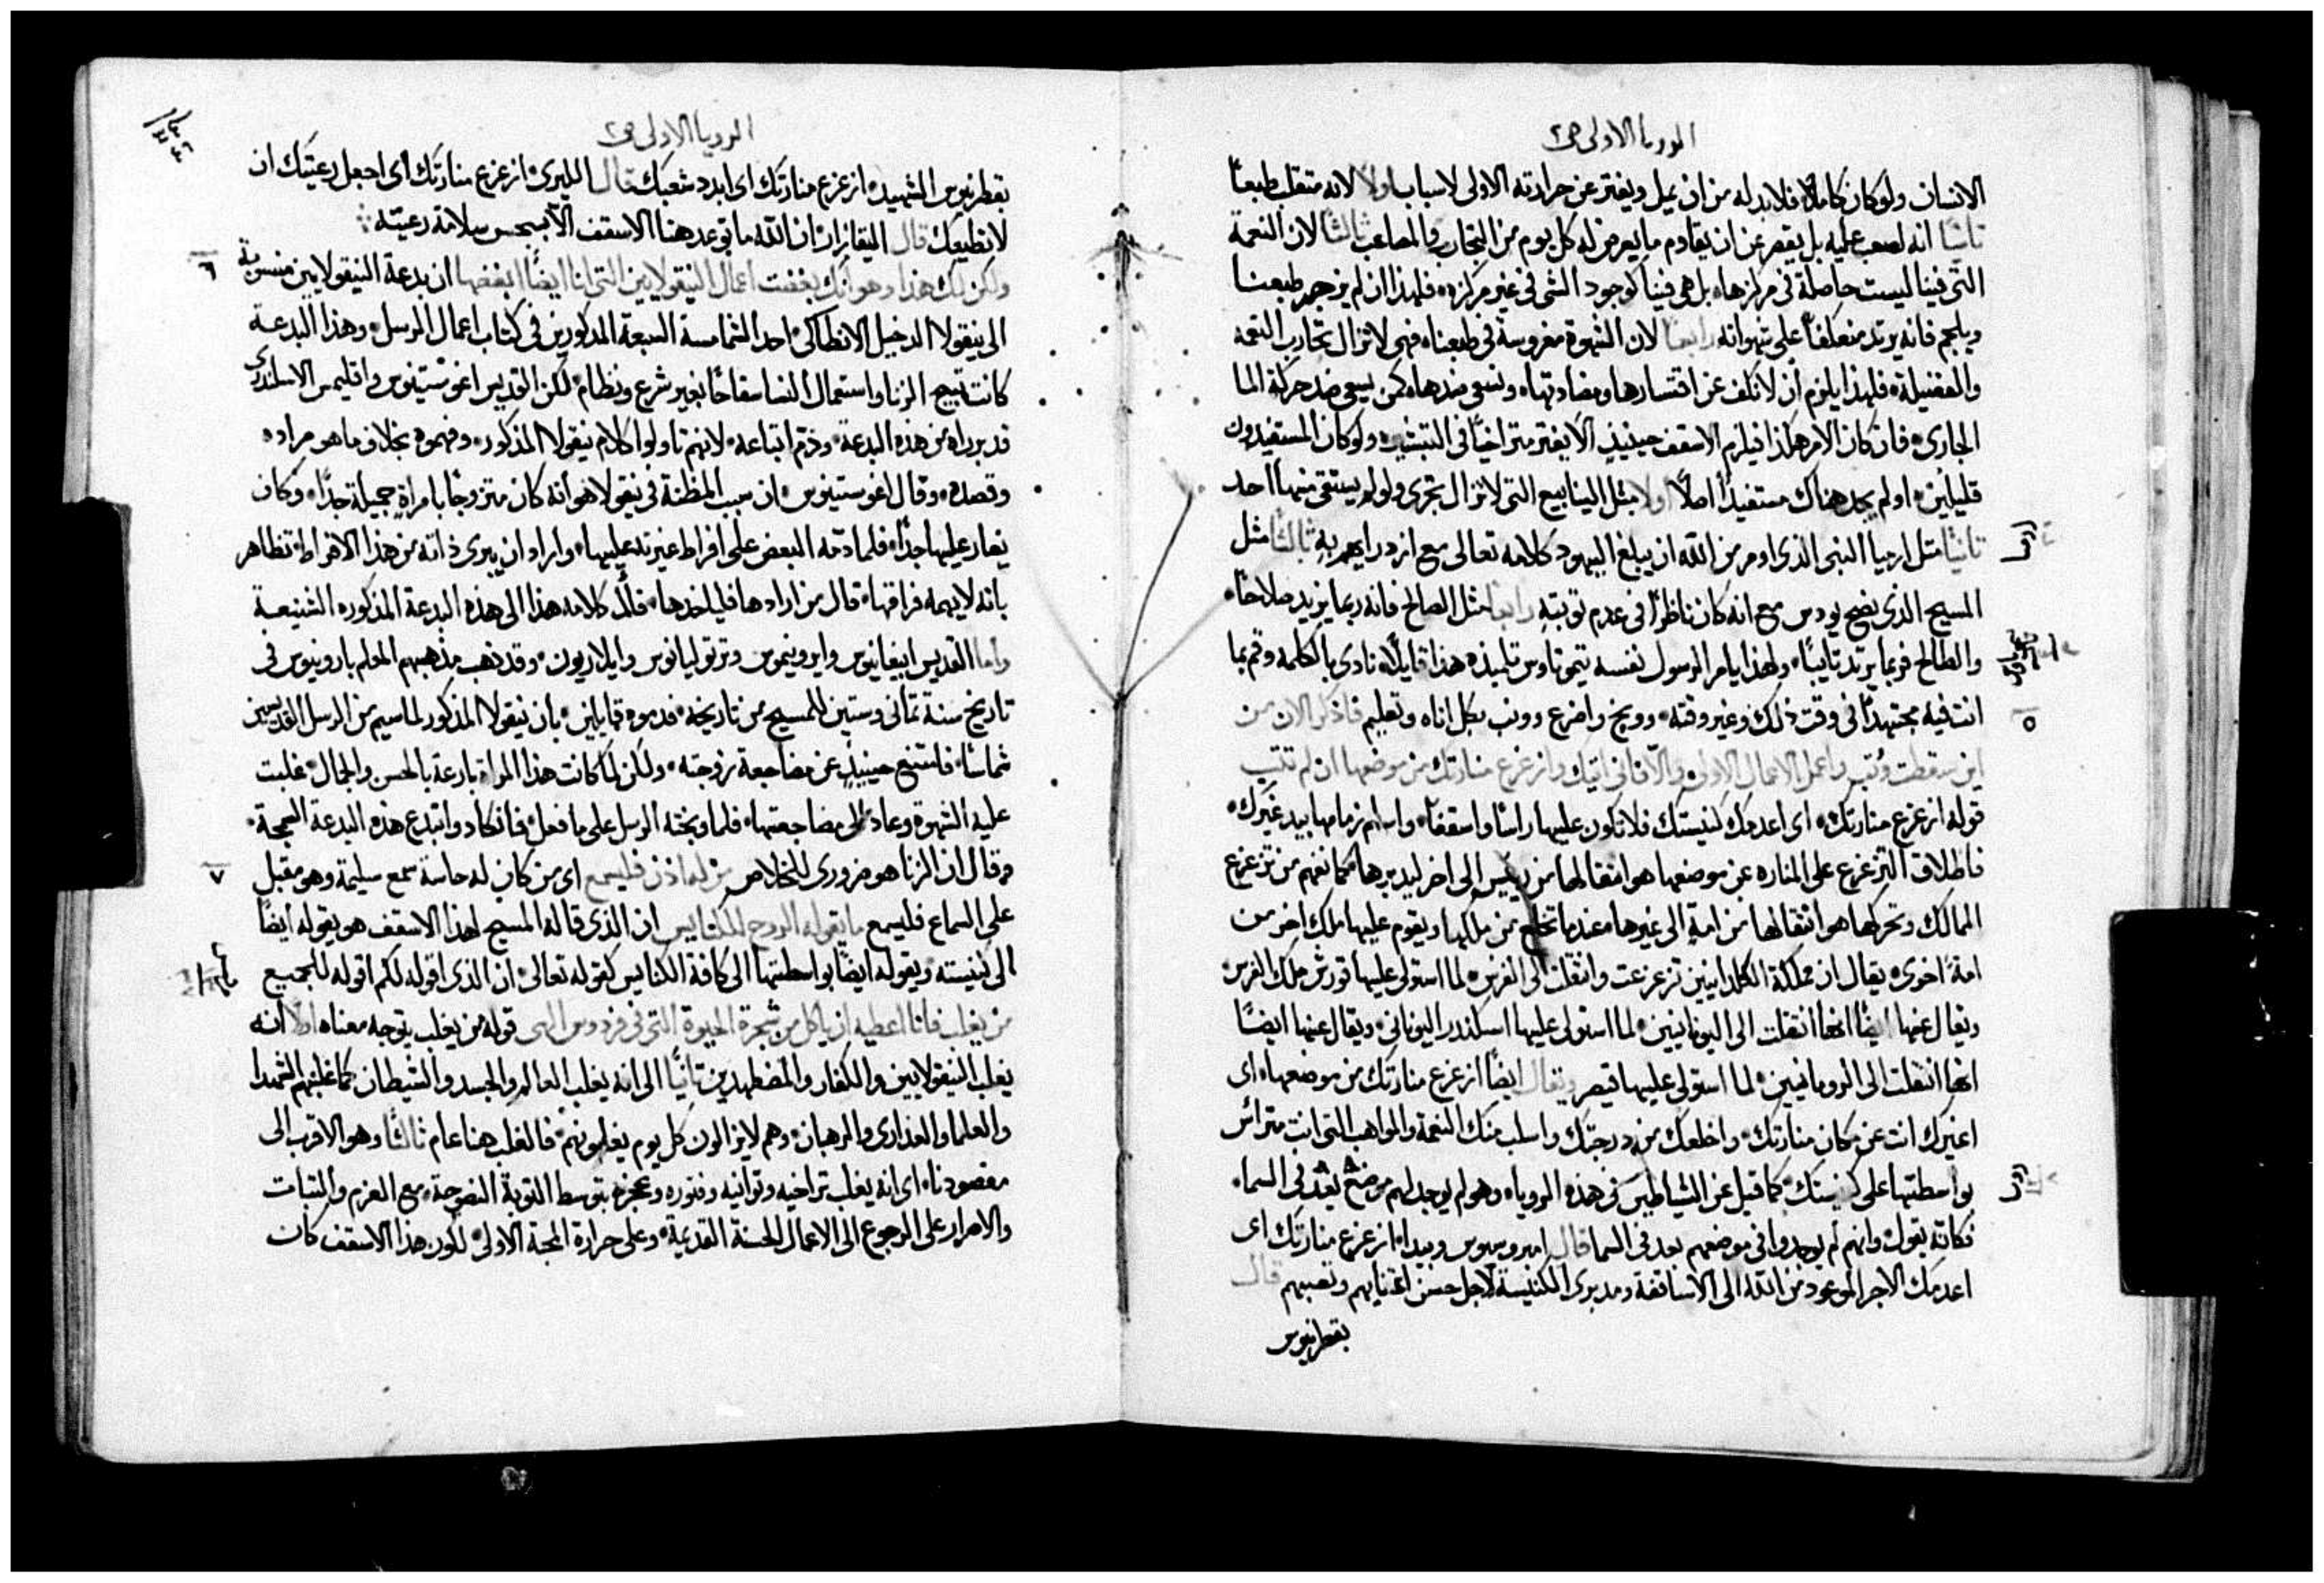 الرويا الاولى ص٢
الانسان ولو كان كاملًا فلابد له من ان يميل ويفتر عن حرارته الاولى لاسباب اولًا لانه متقلب طبعًا
ثانيًا انه لصعب عليه بل يقصر عن ان يقاوم ما يعرض له كل يوم من التجارب والمصاعب ثالثًا لان النعمة
التي فينا ليست حاصلة في مركزها بل هي فينا كوجود الشي في غير مركزه فلهذا ان لم يزجر طبعنا
ويلجم فانه يرتد منعكفًا على شهواته رابعًا لان الشهوة مغروسة في طبعنا فهي لا تزال تحارب النعمه
والفضيلة فلهذا يلزم ان لا نكف عن اقتسارها ومضادتها ونسعى ضدها كمن يسعى ضد حركة الما
الجاري فان كان الامر هكذا فيلزم الاسقف حينيذٍ الّا يفتر متراخيًا في التبشير ولو كان المستفيدون
قليلين او لم يجد هناك مستفيدًا اصلًا اولًا مثل الينابيع التي لا تزال تجري ولو لم يستقي منها احد
ثانيًا مثل ارميا النبي الذي اومر من الله ان يبلغ اليهود كلامه تعالى مع ازدرايهم به ثالثًا مثل
المسيح الذي نصح يودس مع انه كان ناظرًا في عدم توبته رابعًا مثل الصالح فانه ربما يزيد صلاحًا
والطالح فربما يرتد تايبًا ولهذا يامر الرسول نفسه تيموتاوس تلميذه هذا قايلًا نادى بالكلمه وقم بما
٥
انت فيه مجتهدًا في وقت ذلك وغير وقته ووبخ واضرع وونب بكل اناه وتعليم فاذكر الان من
اين سقطت وتب واعمل الاعمال الاولى والّا فاني اتيك وازعزع منارتك من موضعها ان لم تتب
قوله ازعزع منارتك اي اعدمك كنيستك فلا تكون عليها راسًا واسقفًا واسلم زمامها بيد غيرك
فاطلاق التزعزع على المناره عن موضعها هو انتقالها من رييس الى اخر ليدبرها كما نفهم من تزعزع
الممالك وتحركها هو انتقالها من امة الى غيرها عندما تخلع من ملكها ويقوم عليها ملك اخر من
امة اخرى يقال ان مملكة الكلدانيين تزعزعت وانتقلت الى الفرس لما استولى عليها قورش ملك الفرس
ويقال عنها ايضًا انها انتقلت الى اليونانيين لما استولى عليها اسكندر اليوناني ويقال عنها ايضًا
انها انتقلت الى الرومانيين لما استولى عليها قيصر ويقال ايضًا ازعزع منارتك من موضعها اي
اغيرك انت عن مكان منارتك واخلعك من درجتك واسلب منك النعمة والمواهب التي انت مترائس
بواسطتها على كنيستك كما قيل عن الشياطين في هذه الرويا وهو لم يوجد لهم موضع بعد في السماء
فكانه يقول وانهم لم يوجدوا في موضعهم بعد في السما قال امبروسيوس وبيدا ازعزع منارتك اي
اعدمك الاجر الموعود من الله الى الاساقفة ومدبري الكنيسة لاجل حسن اعتنايهم وتعبهم قال
بقطرنيوس
الرويا الاولى ص٢
بقطرنيوس الشهيد ازعزع منارتك اي ابدد شعبك قال الليري ازعزع منارتك اي اجعل رعيتك ان
لا تطيعك قال اليقازار ان الله ما توعد هنا الاسقف الّا بسبب سلامة رعيته
٦
ولكن لك هذا وهو انك بغضت اعمال النيقولايين التي انا ايضًا ابغضها ان بدعة النيقولايين منسوبة
الى نيقولا الدخيل الانطاكي احد الشمامسة السبعة المذكورين في كتاب اعمال الرسل وهذا البدعة
كانت تبيح الزنا واستعمال النسا سفاحًا بغير شرع ونظام لكن القديس اغوستينوس واقليمس الاسكندري
قد برراه من هذه البدعة وذم اتباعه لانهم تاولوا كلام نيقولا المذكور وفهموه بخلاف ما هو مراده
وقصده وقال اغوستينوس ان سبب المظنة في نيقولا هو انه كان متزوجًا بامراة جميلة جدًا وكان
يغار عليها جدًا فلما ذمه البعض على افراط غيرته عليها واراد ان يبري ذاته من هذا الافراط تظاهر
بانه لا يهمه فراقها قال من ارادها فلياخذها فآل كلامه هذا الى هذه البدعة المذكوره الشنيعة
واما القديس ابيفانيوس وايرونيموس وترتوليانوس وايلاريون وقد ذهب مذهبهم المعلم بارونيوس في
تاريخ سنة ثماني وستين للمسيح من تاريخه فذموه قايلين بان نيقولا المذكور لما سيم من الرسل القديسين
شماسًا فامتنع حينيذٍ عن مضاجعة زوجته ولكن لما كانت هذا المراة بارعة بالحسن والجمال غلبت
عليه الشهوة وعاد الى مضاجعتها فلما وبخته الرسل على ما فعل فانكاد وابتدع هذه البدعة السمجة
٧
وقال ان الزنا هو ضروري للخلاص من له اذن فليسمع اي من كان له حاسة سمع سليمة وهو مقبل
على السماع فليسمع ما يقوله الروح للكنايس ان الذي قاله المسيح لهذا الاسقف هو يقوله ايضًا
الى كنيسته ويقوله ايضًا بواسطتها الى كافة الكنايس كقوله تعالى ان الذي اقوله لكم اقوله للجميع
من يغلب فانا اعطيه ان ياكل من شجرة الحيوة التي في فردوس الهي قوله من يغلب يتوجه معناه اولًا انه
يغلب النيقولايين والكفار والمضطهدين ثانيًا الى انه يغلب العالم والجسد والشيطان كما غلبهم الشهدا
والعلما والعذارى والرهبان وهم لا يزالون كل يوم يغلبونهم فالغلب هنا عام ثالثًا وهو الاقرب الى
مقصودنا اي انه يغلب تراخيه وتوانيه وفتوره وعجزه بتوسط التوبة النصوحة مع العزم والثبات
والاصرار على الرجوع الى الاعمال الحسنة القديمة وعلى حرارة المحبة الاولى لكون هذا الاسقف كان